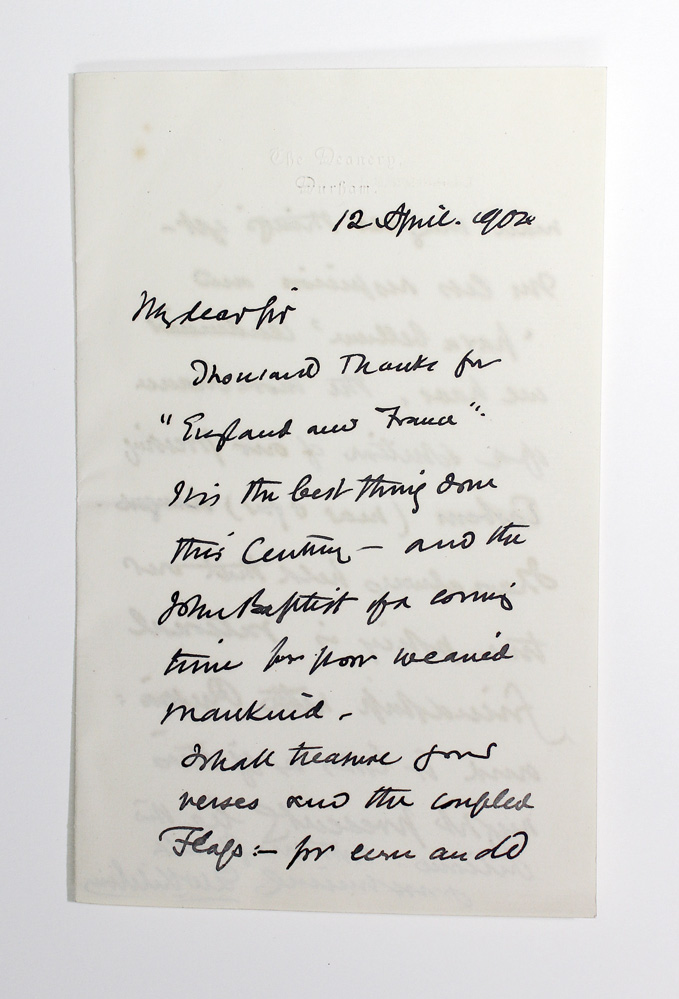 The Deanery,
Durham.
12 April. 1904
My dear Sir
Thousand Thanks for
"England and France".
It is the best thing done
this Century – and the
John Baptist of a coming
time for poor wearied
mankind –
I shall treasure your
verses and the coupled
Flags :– for even an old